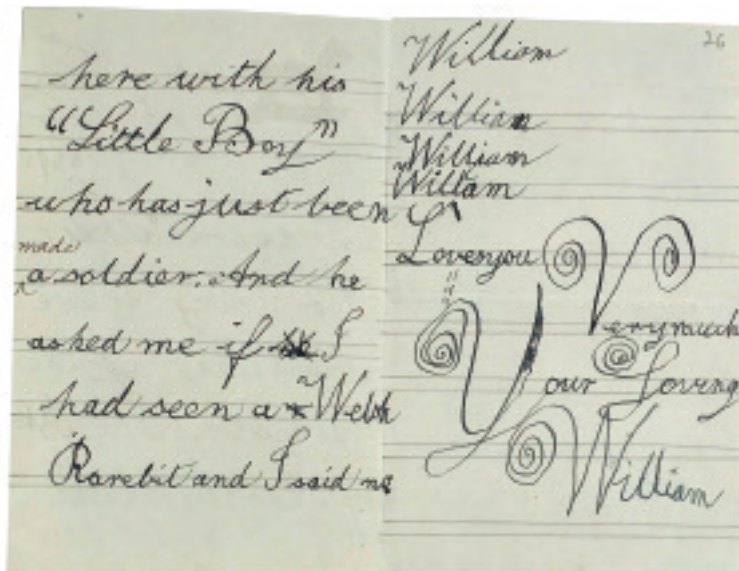 here with his
“Little Boy”
who has just been
made
a soldier. And he
asked me if I
had seen a Welsh
Rarebit and I said no
26
William
William
William
William
Loves you
Very much
Your Loving
William